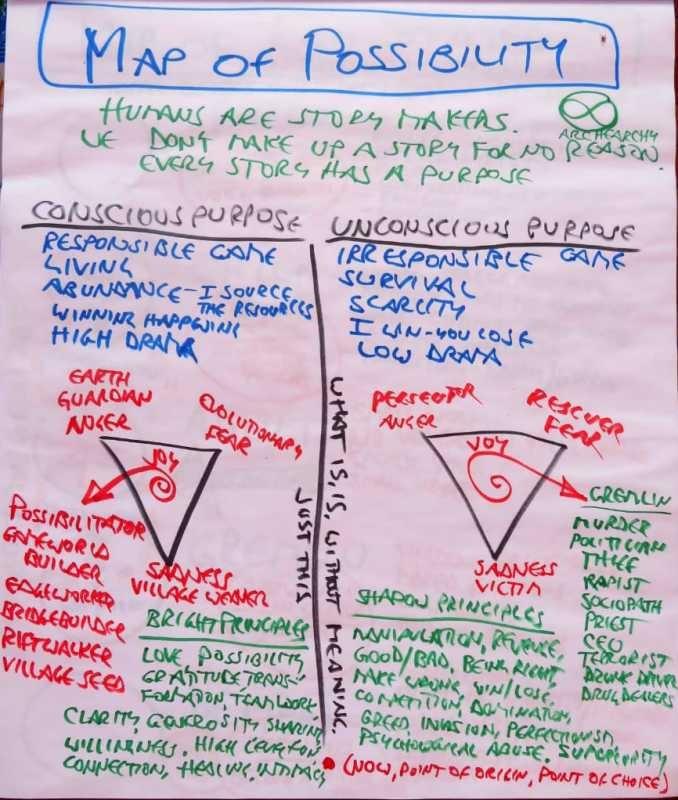 MAP OF POSSIBILITY
HUMANS ARE STORY MAKERS.
WE DON'T MAKE UP A STORY FOR NO REASON.
EVERY STORY HAS A PURPOSE
ARCHEARCHY
CONSCIOUS PURPOSE
RESPONSIBLE GAME
LIVING
ABUNDANCE - I SOURCE
THE RESOURCES
WINNING HAPPENING
HIGH DRAMA
EARTH
GUARDIAN
ANGER
EVOLUTIONARY
FEAR
JOY
SADNESS
VILLAGE WEAVER
POSSIBILITATOR
GAMEWORLD
BUILDER
EDGEWORKER
BRIDGEBUILDER
RIFTWALKER
VILLAGE SEED
BRIGHT PRINCIPLES
LOVE, POSSIBILITY,
GRATITUDE, TRANS-
FORMATION, TEAMWORK,
CLARITY, GENEROSITY SHARING
WILLINGNESS, HIGH LEVEL FUN
CONNECTION, HEALING, INTIMACY
WHAT IS, IS, WITHOUT MEANING.
JUST THIS
UNCONSCIOUS PURPOSE
IRRESPONSIBLE GAME
SURVIVAL
SCARCITY
I WIN-YOU LOSE
LOW DRAMA
PERSECUTOR
ANGER
RESCUER
FEAR
JOY
SADNESS
VICTIM
GREMLIN
MURDER
POLITICIAN
THIEF
RAPIST
SOCIOPATH
PRIEST
CEO
TERRORIST
DRUNK DRIVER
DRUG DEALERS
SHADOW PRINCIPLES
MANIPULATION, REVENGE,
GOOD/BAD, BEING RIGHT,
MAKE WRONG, WIN/LOSE,
COMPETITION, DOMINATION,
GREED, INVASION, PERFECTIONISM
PSYCHOLOGICAL ABUSE, SUPERIORITY
(NOW, POINT OF ORIGIN, POINT OF CHOICE)